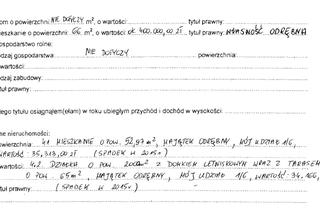 om o powierzchni: NIE DOTYCZY m², o wartości: tytuł prawny:
ieszkanie o powierzchni: 66 m², o wartości: ok. 400.000,00 zł tytuł prawny: WŁASNOŚĆ ODRĘBNA
ospodarstwo rolne:
dzaj gospodarstwa: NIE DOTYCZY powierzchnia:
wartości:
dzaj zabudowy:
tuł prawny:
ego tytułu osiągnąłem(ęłam) w roku ubiegłym przychód i dochód w wysokości:
ne nieruchomości:
owierzchnia: 4.1. MIESZKANIE O POW. 52,97 m², MAJĄTEK ODRĘBNY, MÓJ UDZIAŁ 1/6,
WARTOŚĆ: 35,313,00 zł (SPADEK W 2015r)
wartości: 4.2. DZIAŁKA O POW. 2000m² Z DOMKIEM LETNISKOWYM WRAZ Z TARASEM
O POW. 65m², MAJĄTEK ODRĘBNY, MÓJ UDZIAŁ 1/6, WARTOŚĆ: 34.166,
tuł prawny: (SPADEK W 2015r)